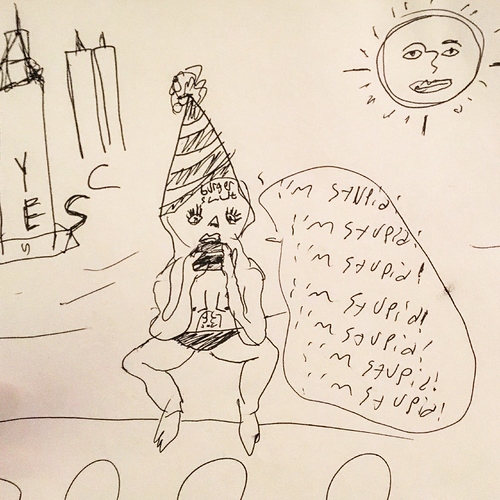 Y
C
E S
S
burger
slut
i'm stupid!
i'm stupid!
i'm stupid!
i'm stupid!
i'm stupid!
i'm stupid!
i'm stupid!